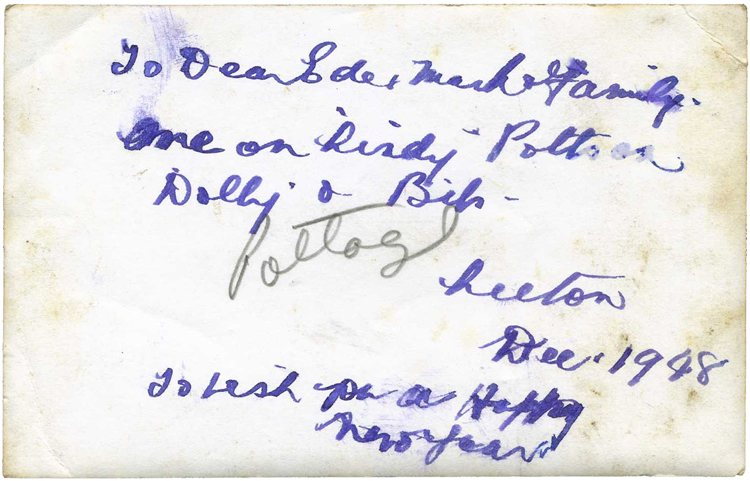 To Dear Ede, Mark & Family.
me on Lindy Potts on
Dolly & Bib-
Pottage
Leeton
Dec. 1948
To wish you a Happy
New Year